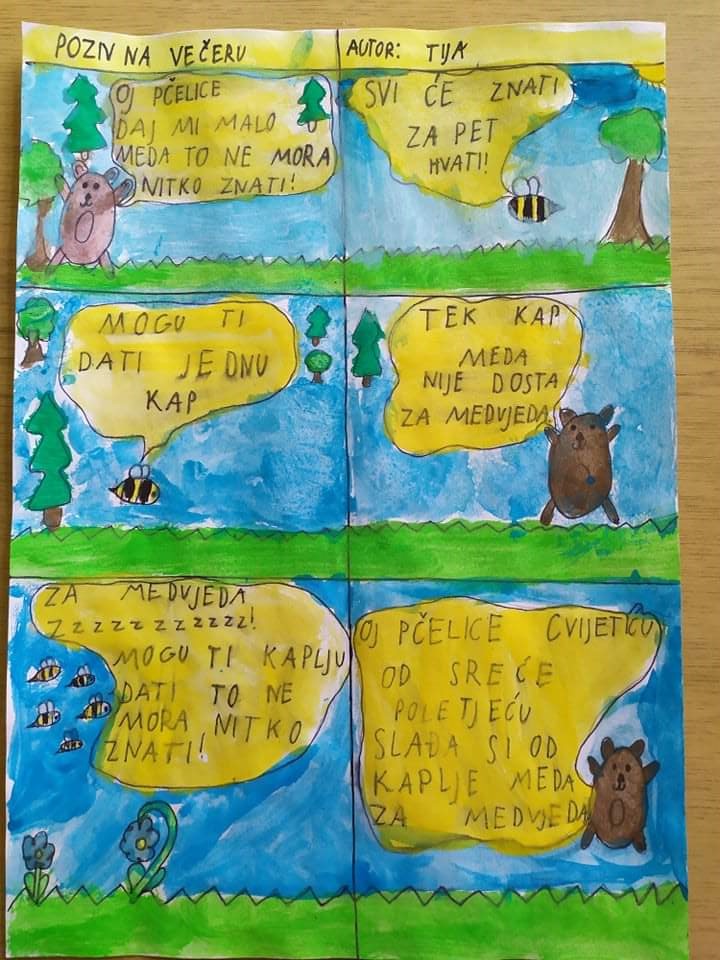 POZIV NA VEČERU
AUTOR: TIJA
OJ PČELICE
DAJ MI MALO
MEDA TO NE MORA
NITKO ZNATI!
SVI ĆE ZNATI
ZA PET
HVATI!
MOGU TI
DATI JEDNU
KAP
TEK KAP
MEDA
NIJE DOSTA
ZA MEDVJEDA
ZA MEDVJEDA
ZZZZZZZZZZZ!
MOGU TI KAPLJU
DATI TO NE
MORA NITKO
ZNATI!
OJ PČELICE CVIJETIĆU
OD SREĆE
POLETJEĆU
SLAĐA SI OD
KAPLJE MEDA
ZA MEDVJEDA